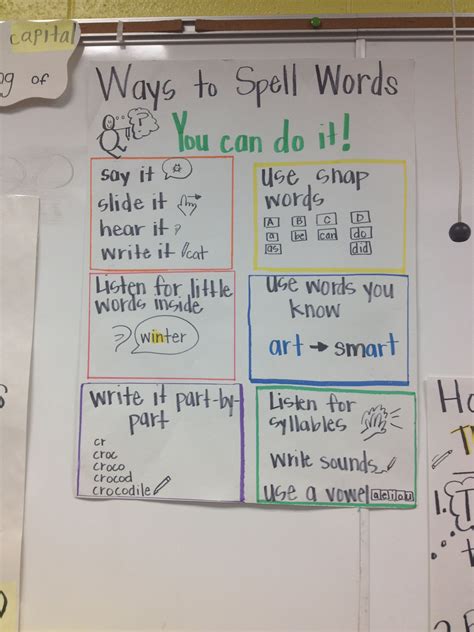 capital
ng of
Ways to Spell Words
You can do it!
say it
slide it
hear it
write it cat
Use snap
words
A B C D
a be can do
as did
Listen for little
words inside
winter
Use words you
know
art → smart
Write it part-by-
part
cr
croc
croco
crocod
crocodile
Listen for
syllables
Write sounds
Use a vowel a e i o u
Ho
1.